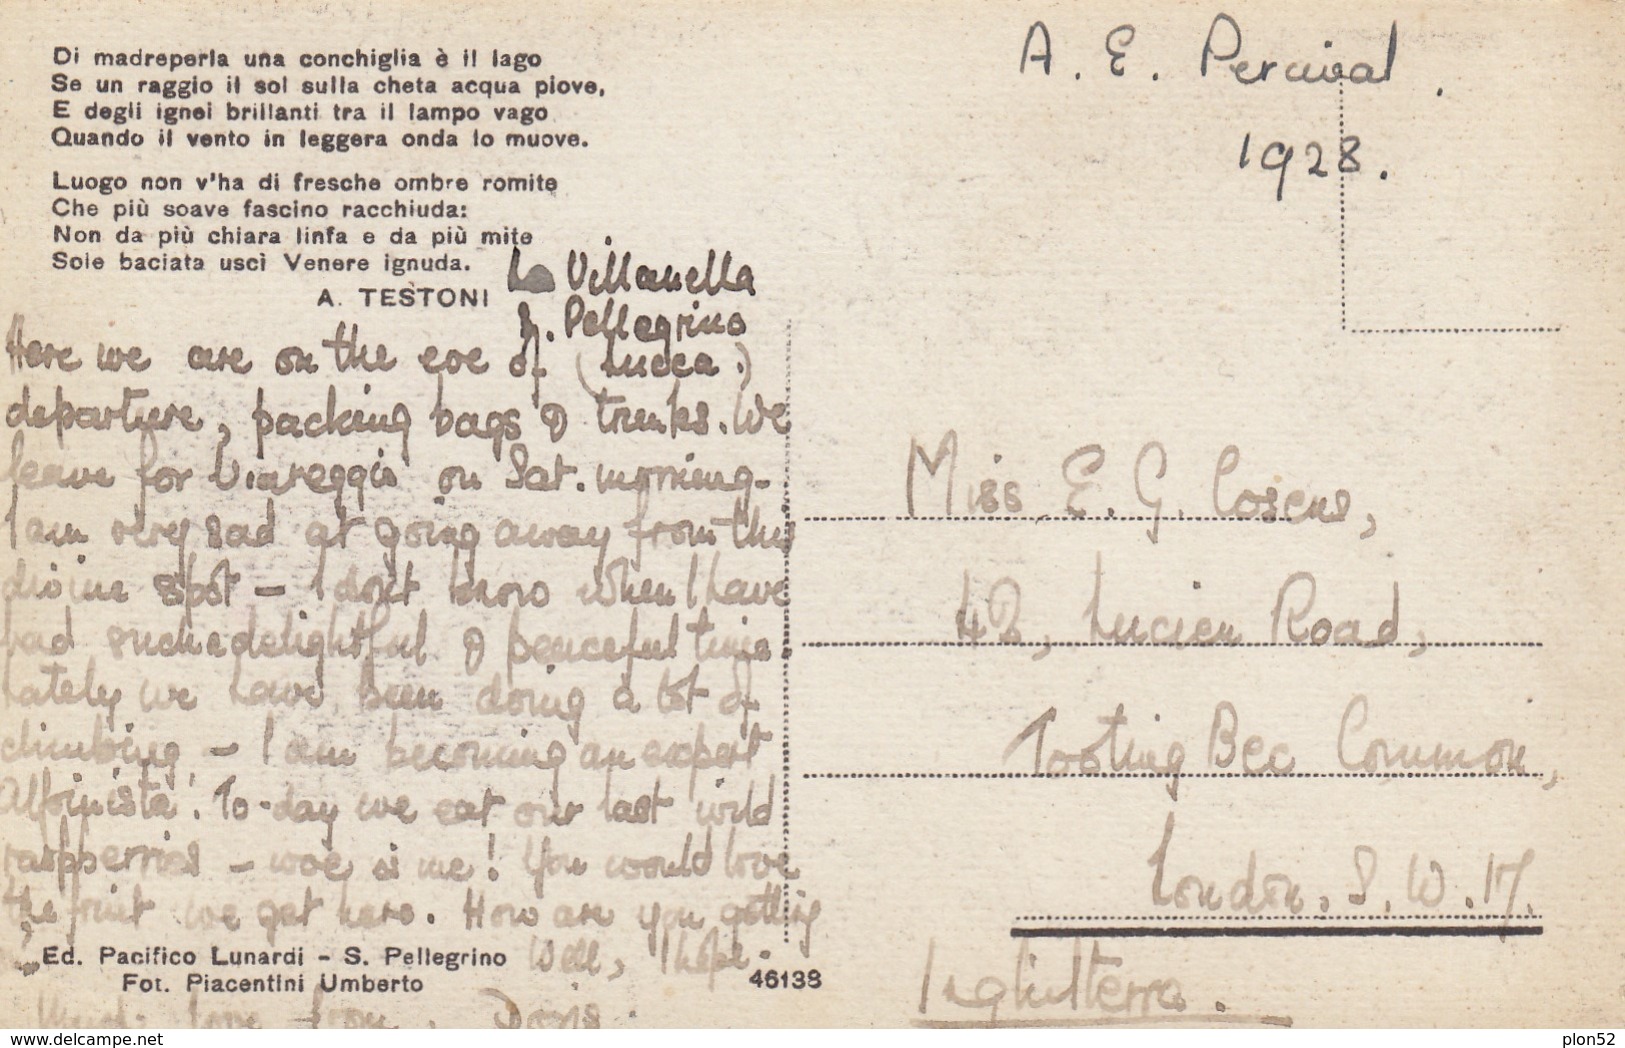 Di madreperla una conchiglia è il lago
Se un raggio il sol sulla cheta acqua piove,
E degli ignei brillanti tra il lampo vago
Quando il vento in leggera onda lo muove.
Luogo non v'ha di fresche ombre romite
Che più soave fascino racchiuda:
Non da più chiara linfa e da più mite
Sole baciata uscì Venere ignuda.
A. TESTONI
La Villanella
S. Pellegrino
(Lucca.)
Here we are on the eve of
departure, packing bags & trunks. We
leave for Viareggio on Sat. morning.
I am very sad at going away from this
divine spot – I don't know when I have
had such a delightful & peaceful time.
Lately we have been doing a lot of
climbing – I am becoming an expert
Alpinista! To-day we eat our last wild
raspberries – woe is me! You would love
the fruit we get here. How are you getting
Well, I hope.
Much love from Doris.
Ed. Pacifico Lunardi – S. Pellegrino
Fot. Piacentini Umberto
46138
A. E. Percival.
1928.
Miss E. G. Cosens,
42, Lucien Road,
Tooting Bec Common,
London. S. W. 17.
Inghilterra.
delcampe.net
plon52